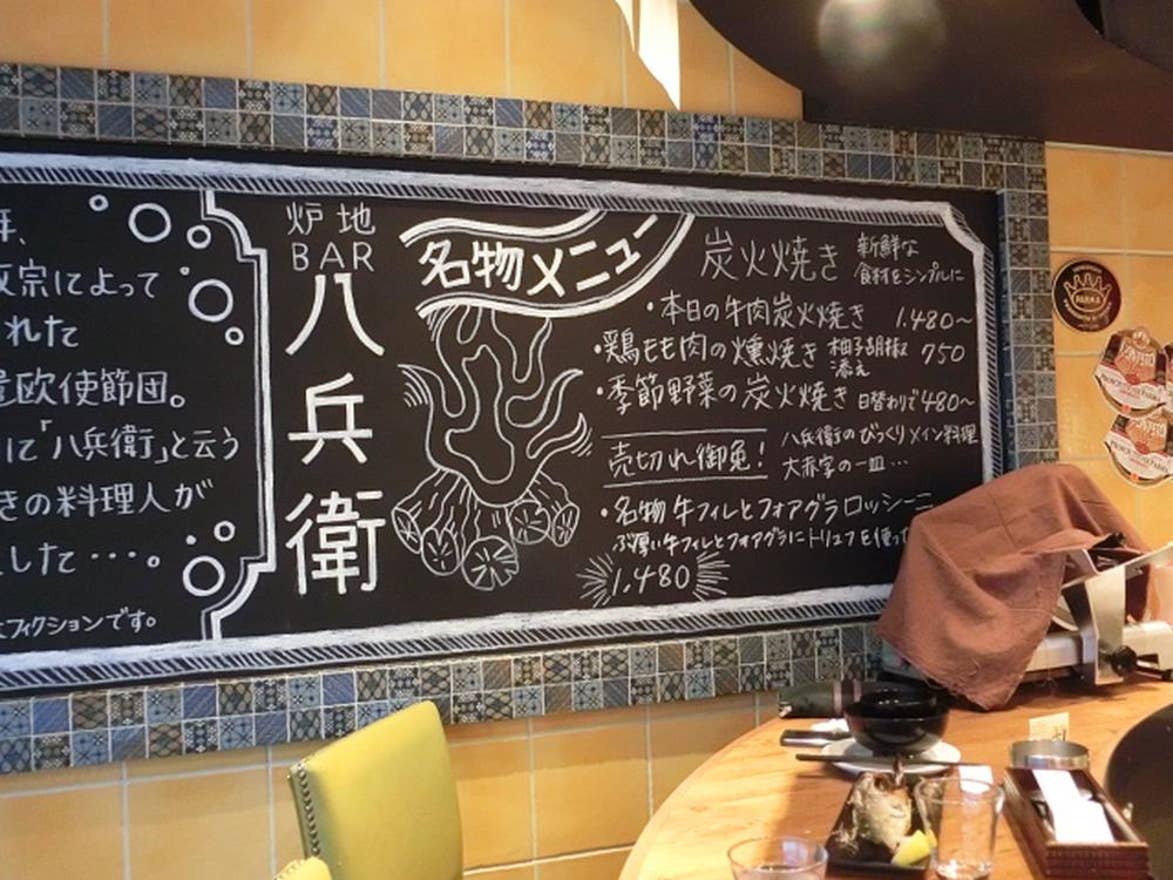 によって
れた
欧使節団。
に「八兵衛」と云う
きの料理人が
した・・・。
フィクションです。
炉地
BAR
八兵衛
名物メニュー
炭火焼き 新鮮な
食材をシンプルに
・本日の牛肉炭火焼き 1.480～
・鶏もも肉の燻焼き 柚子胡椒添え 750
・季節野菜の炭火焼き 日替わりで480～
売切れ御免! 八兵衛のびっくりメイン料理
大赤字の一皿…
・名物 牛フィレとフォアグラロッシーニ
ぶ厚い牛フィレとフォアグラにトリュフを使った
1,480
PARMA